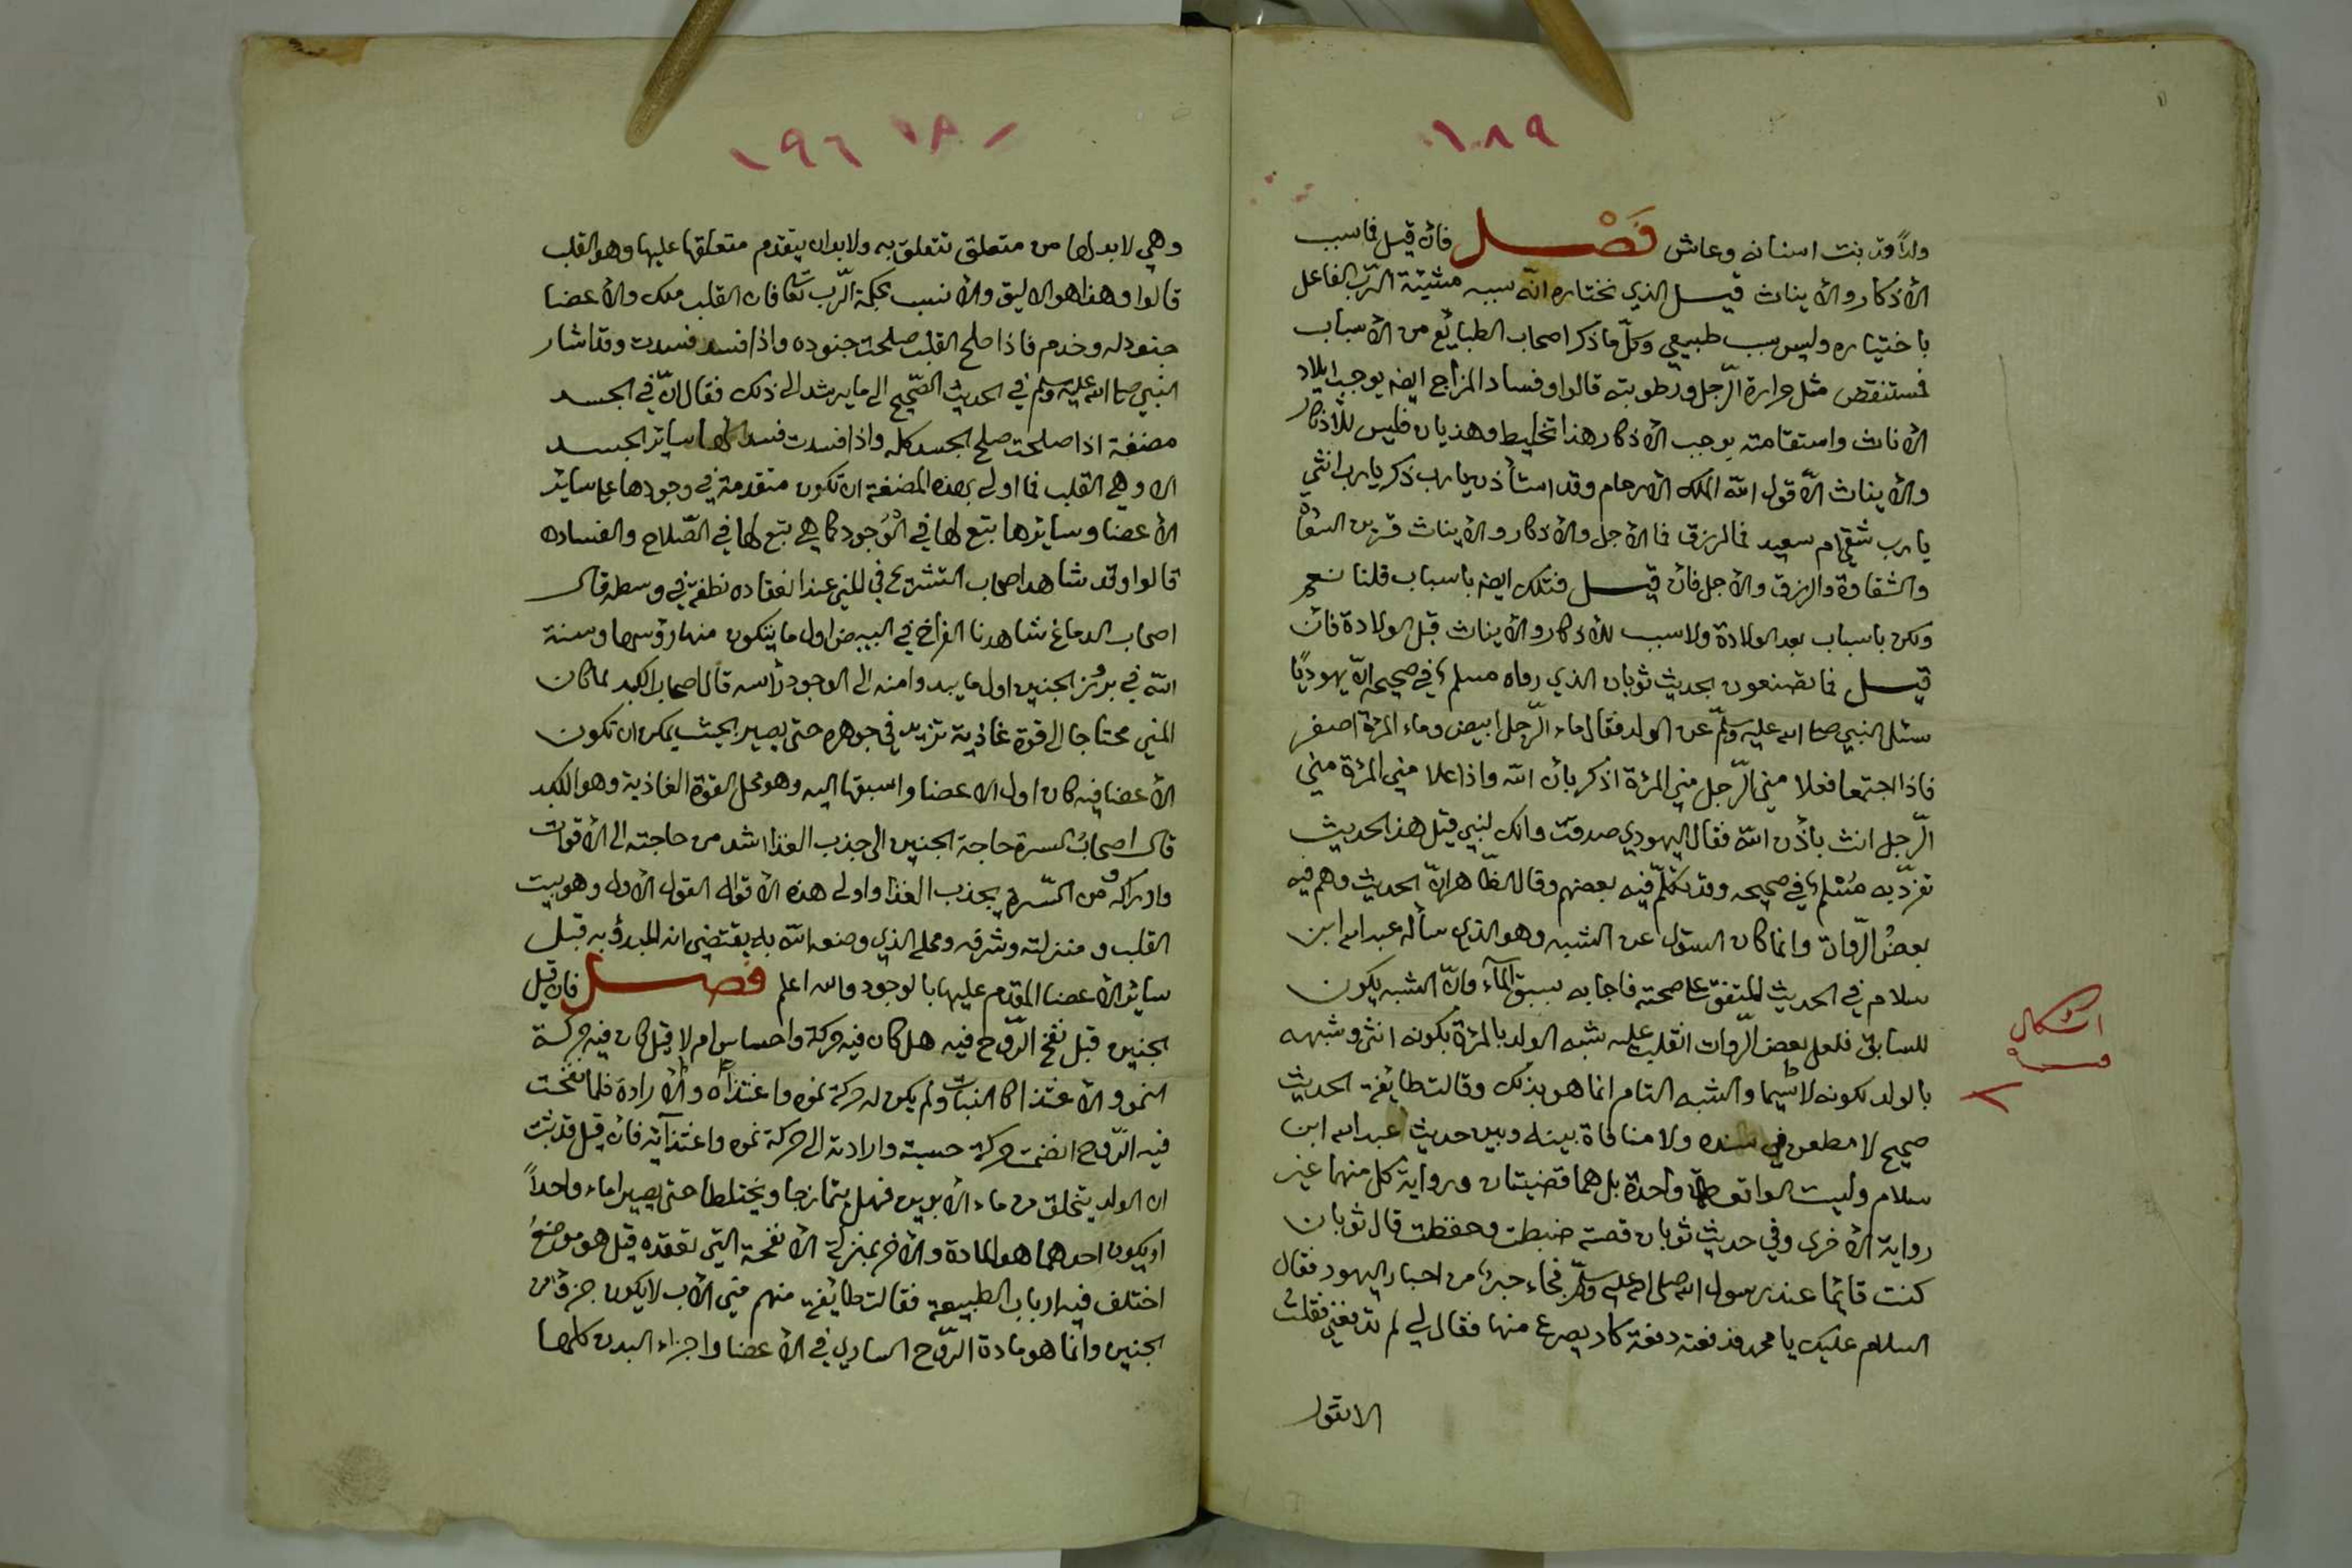 ١٨٩
ولدا وقد بنت اسنانه وعاش فَصْل فان قيل فما سبب
الأذكار والأيناث قيل الذي نختاره انّه سببه مشيئة الرّب الفاعل
باختياره وليس بسبب طبيعي وكلّ ما ذكر اصحاب الطبايع من الأسباب
فمستنقض مثل حرارة الرّجل ورطوبته قالوا وفساد المزاج ايضه يوجب ايلاد
الأناث واستقامته يوجب الأذكار هذا تخليط وهذيان فليس للأذكار
والأيناث الّا قول الله لملك الأرحام وقد استأذن يا رب ذكر يا رب انثي
يا رب شقي ام سعيد فما الرزق فما الأجل والأذكار والأيناث قرين السعادة
والشقاوة والرزق والأجل فأن قيل فتلك ايضه باسباب قلنا نعم
ولكن باسباب بعد الولادة ولا سبب للأذكار والأيناث قبل الولادة فأن
قيل فما تصنعون بحديث ثوبان الذي رواه مسلم في صحيحه انّ يهوديًا
سئل النبي صلى الله عليه وسلم عن الولد فقال ماء الرّجل ابيض وماء المرئة اصفر
فاذا اجتمعا فعلا مني الرّجل مني المرئة اذكر بأذن الله واذا علا مني المرئة مني
الرّجل انث بأذن الله فقال اليهودي صدقت وانك لنبي قيل هذا الحديث
تفردّ به مُسْلم في صحيحه وقد تكلّم فيه بعضهم وقال الظّاهر انّ الحديث وهم فيه
بعضُ الرّوات وانما كان السؤال عن الشبه وهو الذي سأله عبد الله ابن
سلام في الحديث المتفق علي صحته فاجابه بسبق المآء وانّ الشبه يكون
للسابق فلعل بعض الرّوات انقلب عليه شبه الولد بالمرئة بكونه انثى وشبهه
بالولد لكونه لا سيّما والشبه التام انما هو بذلك وقالت طائفة الحديث
صحيح لا مطعن في سنده ولا منافاة بينه وبين حديث عبد الله ابن
سلام وليست الواقعة واحدة بل هما قضيتان ورواية كل منهما غير
رواية الأخرى وفي حديث ثوبان قصة ضبطت وحفظت قال ثوبان
كنت قائما عند رسول الله صلى الله عليه وسلّم فجاء حبر من احبار اليهود فقال
السلام عليك يا محمد فدفعته دفعة كاد يصرع منها فقال لي لم تدفعني فقلت
الا تقول
اشكال
١٩٦ ١٨٠
وهي لا بد لها من متعلق تتعلق به ولا بد ان يتقدم متعلقها عليها وهو القلب
قالوا وهذا هو الاليق والأنسب بحكمة الرّب تعا فان القلب ملك والأعضا
جنود له وخدم فاذا صلح القلب صلحت جنوده واذا فسد فسدت وقد اشار
النبي صلى الله عليه وسلم في الحديث الصّحيح الى ما يرشد الى ذلك فقال انّ في الجسد
مضغة اذا صلحت صلح الجسد كله واذا فسدت فسد لها ساير الجسد
الا وهي القلب فما اولى بهذه المضغة ان تكون متقدمة في وجودها على ساير
الأعضا وسايرها بتع لها في الْوُجود كما هي بتع لها في الصّلاح والفساده
قالوا وقد شاهد اصحاب التشريح في المني عند انعقاده نطفة في وسطه قال
اصحاب الدماغ شاهدنا الفراخ في البيض اول ما يتكون منها رؤسها وسنة
الله في بروز الجنين اول ما يبدو منه الى الوجود رأسه قال اصحاب الكبد لما كان
المني محتاجا الى قوة غاذية تزيد في جوهره حتى يصير بحيث يمكن ان تكون
الأعضا فيه كان اول الاعضا واسبقها اليه وهو محل القوة الغاذية وهو الكبد
قال اصحابُ السرة حاجة الجنين الى جذب الغذا اشد من حاجته الى الأقوات
وادراكه ومن السّرة يجذب الغذا واولى هذه الأقوال القول الأول وهو بيت
القلب ومنزلته وشرفه ومحله الذي وضعه الله به يقتضى انه المبدؤ به قبل
ساير الأعضا المقدم عليها بالوجود والله اعلم فصل فان قيل
الجنين قبل نفخ الرّوح فيه هل كان فيه حركة واحساس ام لا قيل كان فيه حركة
النمو والأغتذا كالنبات ولم يكن له حركة نموه واغتذآه والأرادة فلما نفخت
فيه الرّوح انضمت حركة حسية وارادية الى حركة نموه واغتذآئه فأن قيل قد ثبت
ان الولد يتخلق من ماء الأبوين فهل يتمازجا ويختلطا حتى يصيرا ماء واحداً
او يكون احدهما هو المادة والأخر بمنزلة الأنفحة التي تعقده قيل هو موضعُ
اختلف فيه ارباب الطبيعة فقالت طائفة منهم مني الأب لا يكون جزؤ من
الجنين وانما هو مادة الرّوح الساري في الأعضا واجزاء البدن كلها